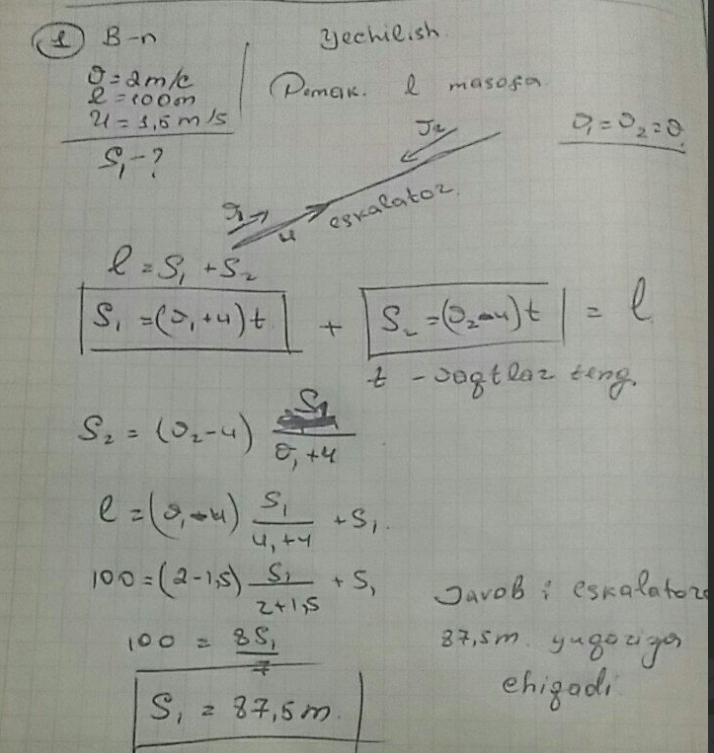 ① B-n Yechilish.
ϑ = 2 m/c
l = 100 m
u = 1,5 m/s
S₁ - ?
Demak. l masofa
ϑ₁ = ϑ₂ = ϑ
ϑ₂
ϑ₁
u eskalator.
l = S₁ + S₂
S₁ = (ϑ₁ + u) t + S₂ = (ϑ₂ - u) t = l
t - vaqtlar teng.
S₂ = (ϑ₂ - u) S₁ / (ϑ₁ + u)
l = (ϑ₁ - u) S₁ / (u₁ + u) + S₁.
100 = (2 - 1,5) S₁ / (2 + 1,5) + S₁
100 = 8S₁ / 7
S₁ = 87,5 m.
Javob : eskalator
87,5 m. yuqoriga
chiqadi